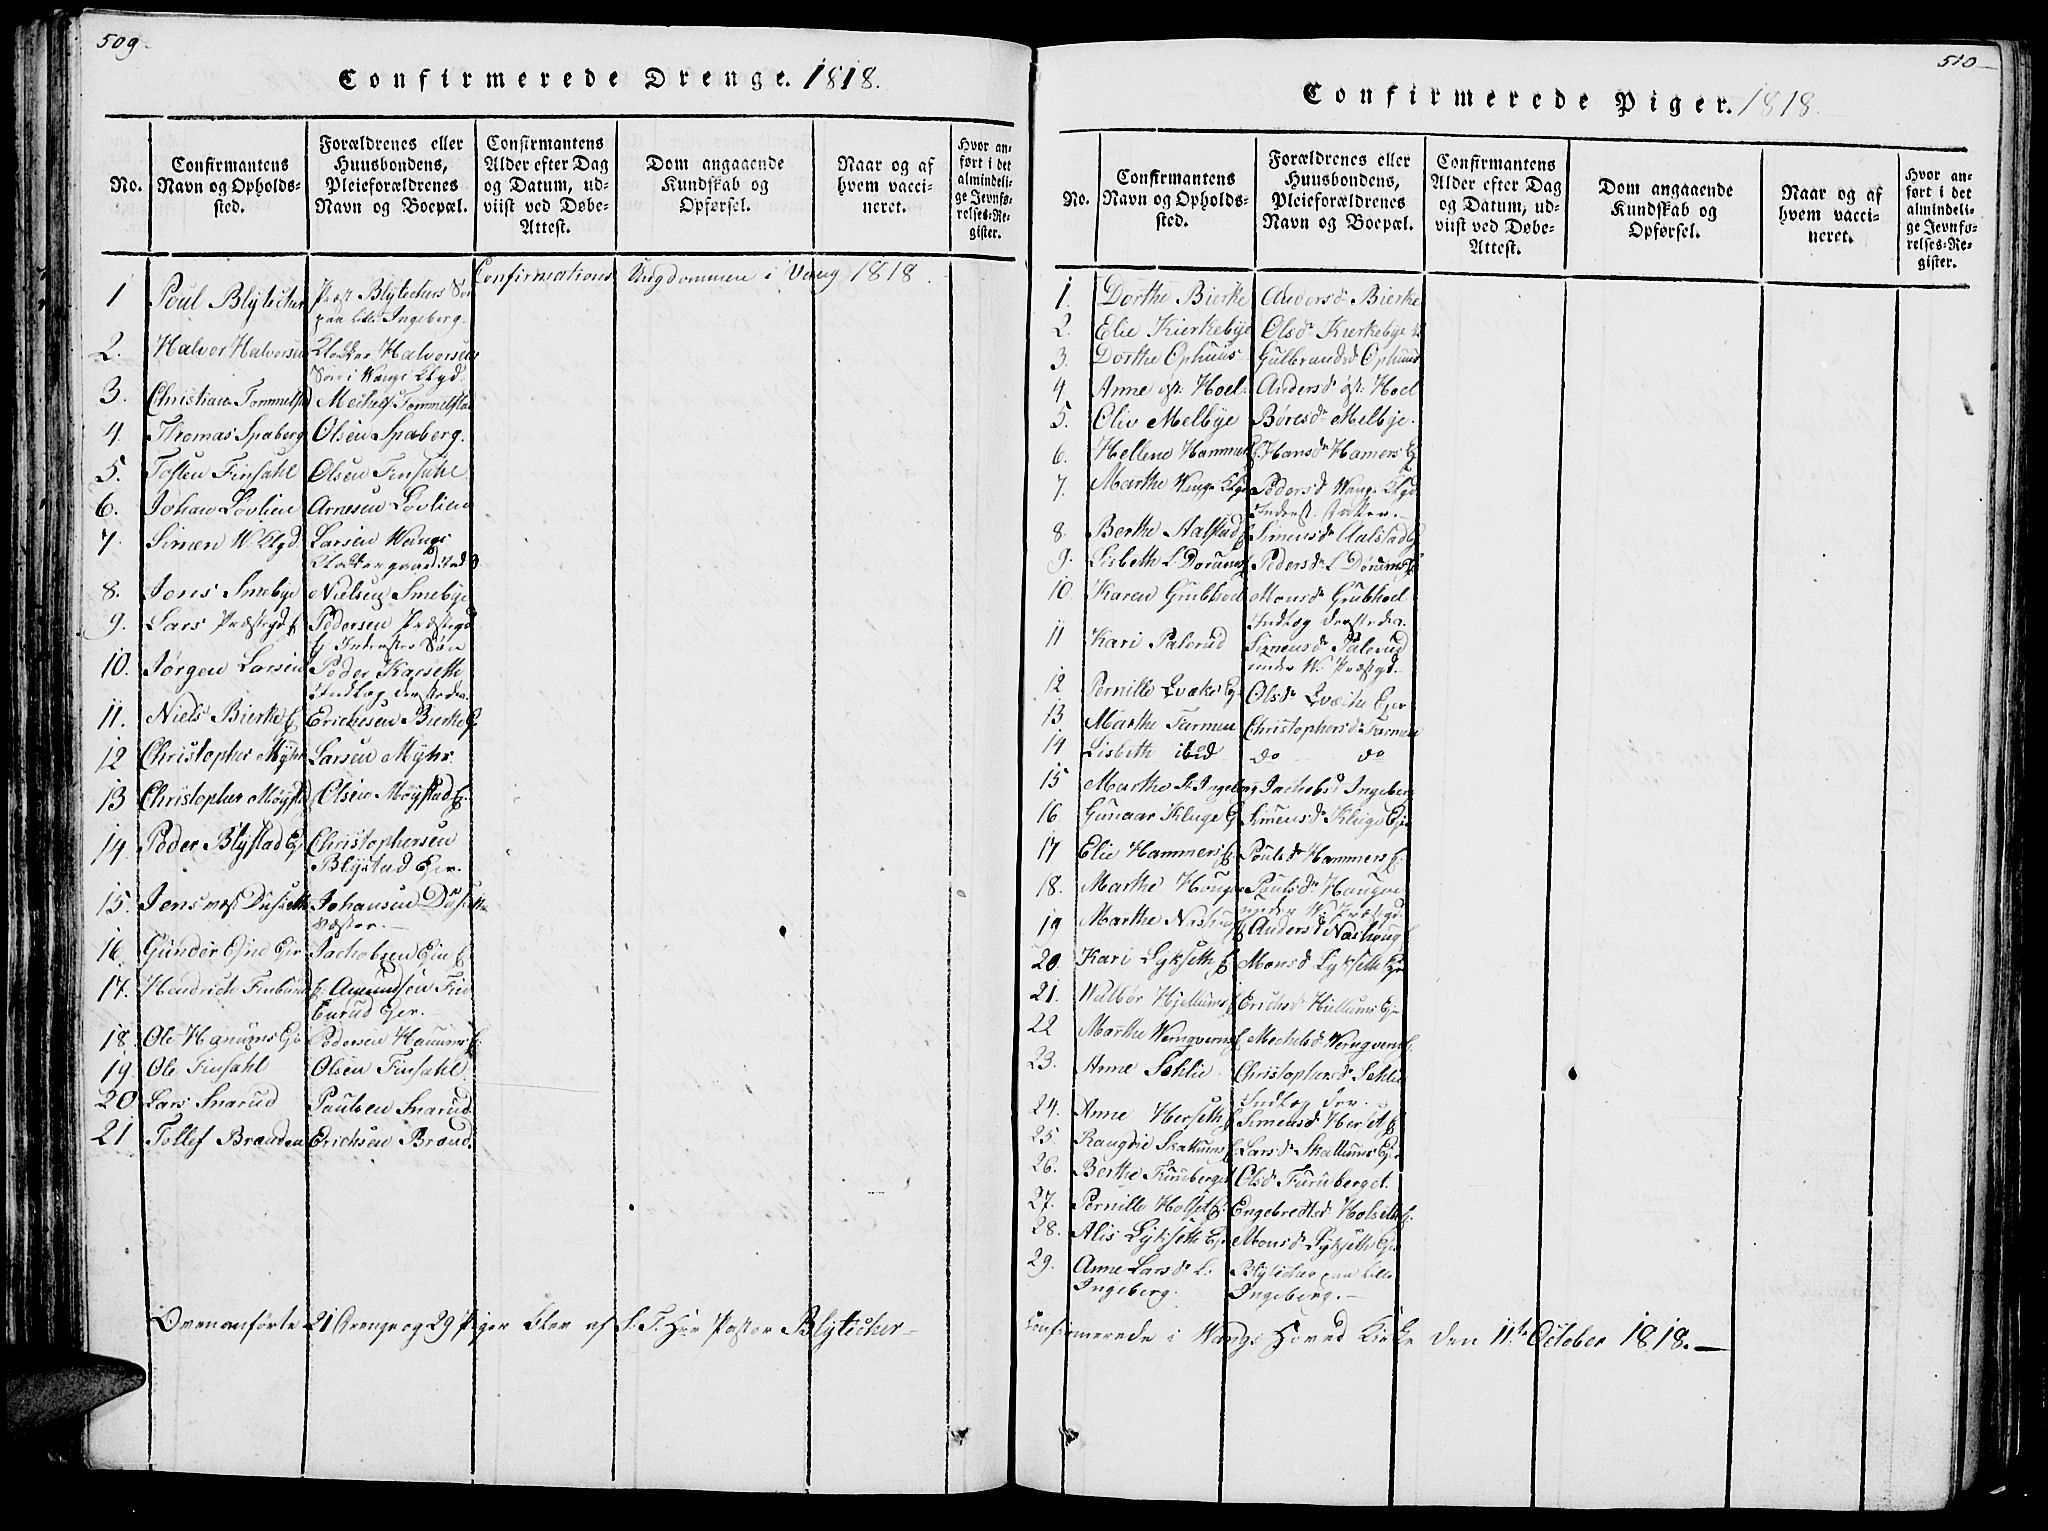 509.
Confirmerede Drenge. 1818.
No.
Confirmantens Navn og Opholds-sted.
Forældrenes eller Huusbondens, Pleieforældrenes Navn og Boepæl.
Confirmantens Alder efter Dag og Datum, ud-viist ved Døbe-Attest.
Dom angaaende Kundskab og Opførsel.
Naar og af hvem vacci-neret.
Hvor an-ført i det almindeli-ge Jevnfø-relses-Re-gister.
Confirmations Ungdommen i Vang 1818.
1 Poul Blytecher Præst Blytechers Søn
paa Lille Ingeberg.
2. Halvor Halvorsen Klokker Halvorsens
Søn i Wangs Klgd.
3. Christian Tommelstad Mechels. Tommelstad
4. Thomas Spaberg Olsen Spaberg.
5. Tosten Finsahl Olsen Finsahl
6. Johan Lovlien Arnesen Lovlien
7. Simen W. Klgd Larsen Wangs
Klokkergaard
8. Jons Smebye Nielsen Smebye
9. Lars Præstegd Pedersen Præstegd
Inderstes Søn
10. Jørgen Larsen Peder Karseth
Indlæg dersteder.
11. Niels Bierke E Erichsen Bierke E
12 Christopher Myhr Larsen Myhr.
13 Christopher Møystad Olsen Møystad E.
14. Peder Blystad Ej Christophersen
Blystad Ejer.
15. Jens vest Duseth Johansen Duseth
vester.
16. Gunder Ejne Ejer Jachobsen Ejne E
17. Hendrich Finburud E. Amundsen Fin
burud Ejer.
18. Ole Hanums Eje Pedersen Hanums E.
19 Ole Finsahl Olsen Finsahl
20 Lars Snarud Paulsen Snarud
21 Tollef Brænden Erichsen Brænd.
Ovenanførte 21 Drenge og 29 Piger blev af S. T. Her Pastor Blytecher
510
Confirmerede Piger. 1818.
No.
Confirmantens Navn og Opholds-sted.
Forældrenes eller Huusbondens, Pleieforældrenes Navn og Boepæl.
Confirmantens Alder efter Dag og Datum, ud-viist ved Døbe-Attest.
Dom angaaende Kundskab og Opførsel.
Naar og af hvem vacci-neret.
Hvor an-ført i det almindeli-ge Jevnfø-relses-Re-gister.
1. Dorthe Bierke Andersd Bierke
2. Elie Kierkebye Olsdr Kierkebye
3. Dorthe Ophuus Gulbrandsd Ophuus
4 Anne øst. Hoel Andersd øst. Hoel
5. Oliv Melbye Boresdr Melbye.
6. Hellene Hammers E Hansdr Hamers E
7. Marthe Wangs Klgd Pedersd Wangs Klgd
8. Berthe Aalstad E Simensdr Aalstad E
9. Lisbeth L Dorums E Pedersdr L Dorums E
10. Karen Grubhoel Monsdr Grubhoel
Indlæg dersteder.
11 Kari Palerud Simensd Palerud
under W. Præstgd.
12 Pernille Qvæke Ej. Olsdr Qvæcke Ejer
13. Marthe Furmen Christophersdr Furmen
14 Lisbeth ibid do do
15 Marthe St. Ingeberg Jachobsd Ingeberg
16. Gunaar Kluge E Simensdr Kluge Eje
17 Elie Hammers E. Poulsdr Hammers E.
18. Marthe Hougen Poulsdr Haugen
under W. Præstgd.
19 Marthe Nashoug E Andersd Nashoug E
20. Kari Lykseth E Monsd Lykseth Ejr
21. Walbør Hjellums E Erichsd Hiellums Eje
22 Marthe Werngverns E Mechelsd Werngverns E.
23. Anne Sehlie Christophersd Sehlie
Indlæg der.
24. Anne Herseth E Simensd Herset E
25. Rangdie Skatums E Larsdr Skattums Ejer
26. Berthe Furuberget Olsd Furuberget.
27. Pernille Holset E. Engebredtsd Holseth E.
28. Alis Lykseth Eje Monsdr Lykseth Eje
29. Anne Larsdr L: Blytecher paa Lille
Ingeberg. Ingeberg.
Confirmerede i Wangs Hoved Kirke den 11te October 1818.